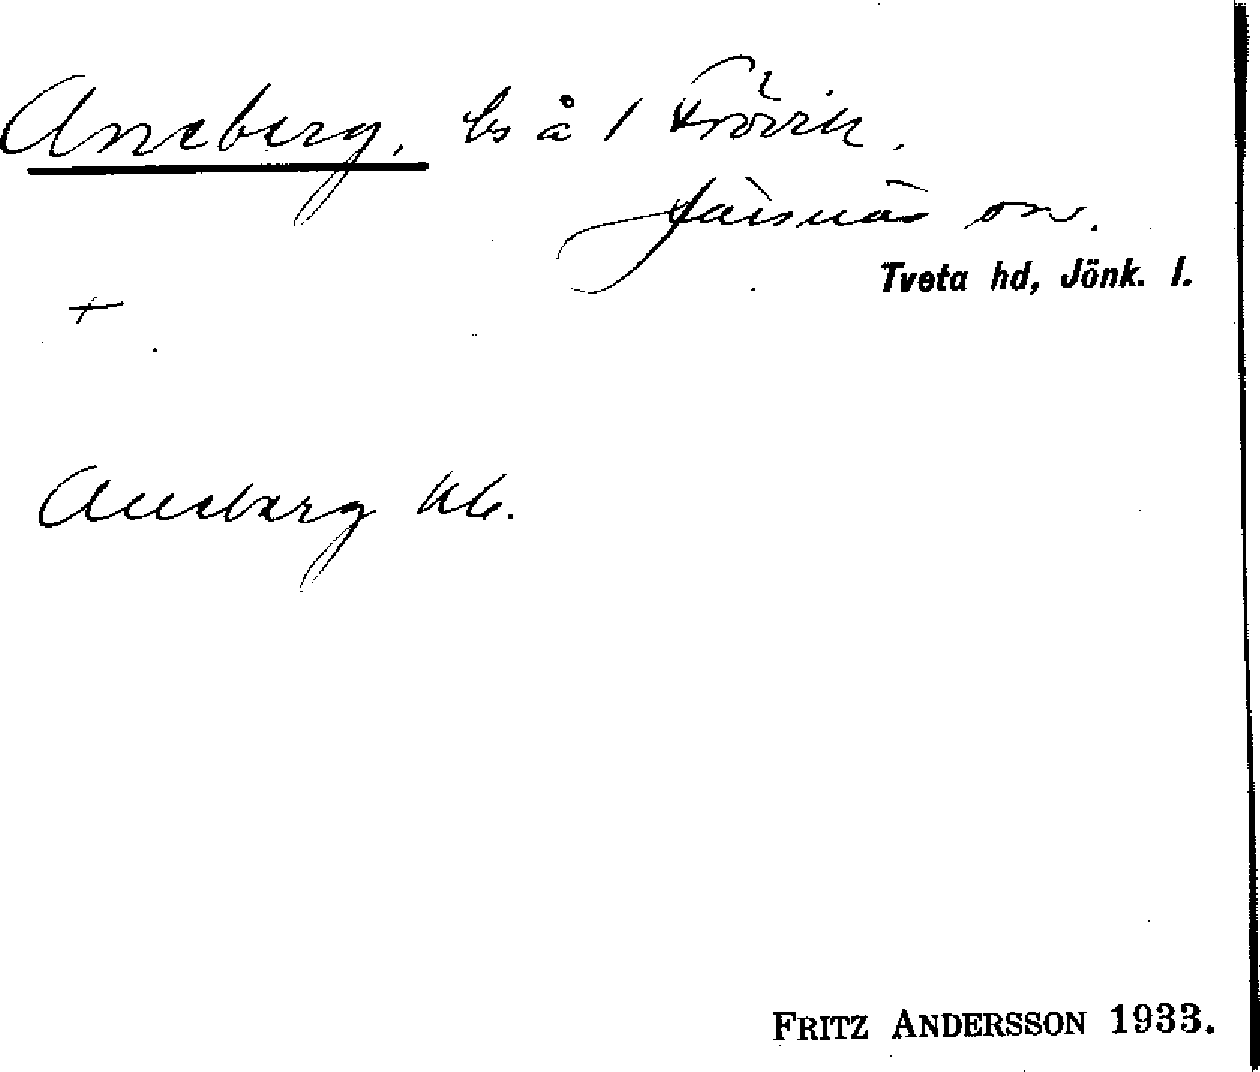 Anneberg, bs å 1 Frövik.
Järsnäs sn.
Tveta hd, Jönk. l.
+
Anneberg Kb.
FRITZ ANDERSSON 1933.